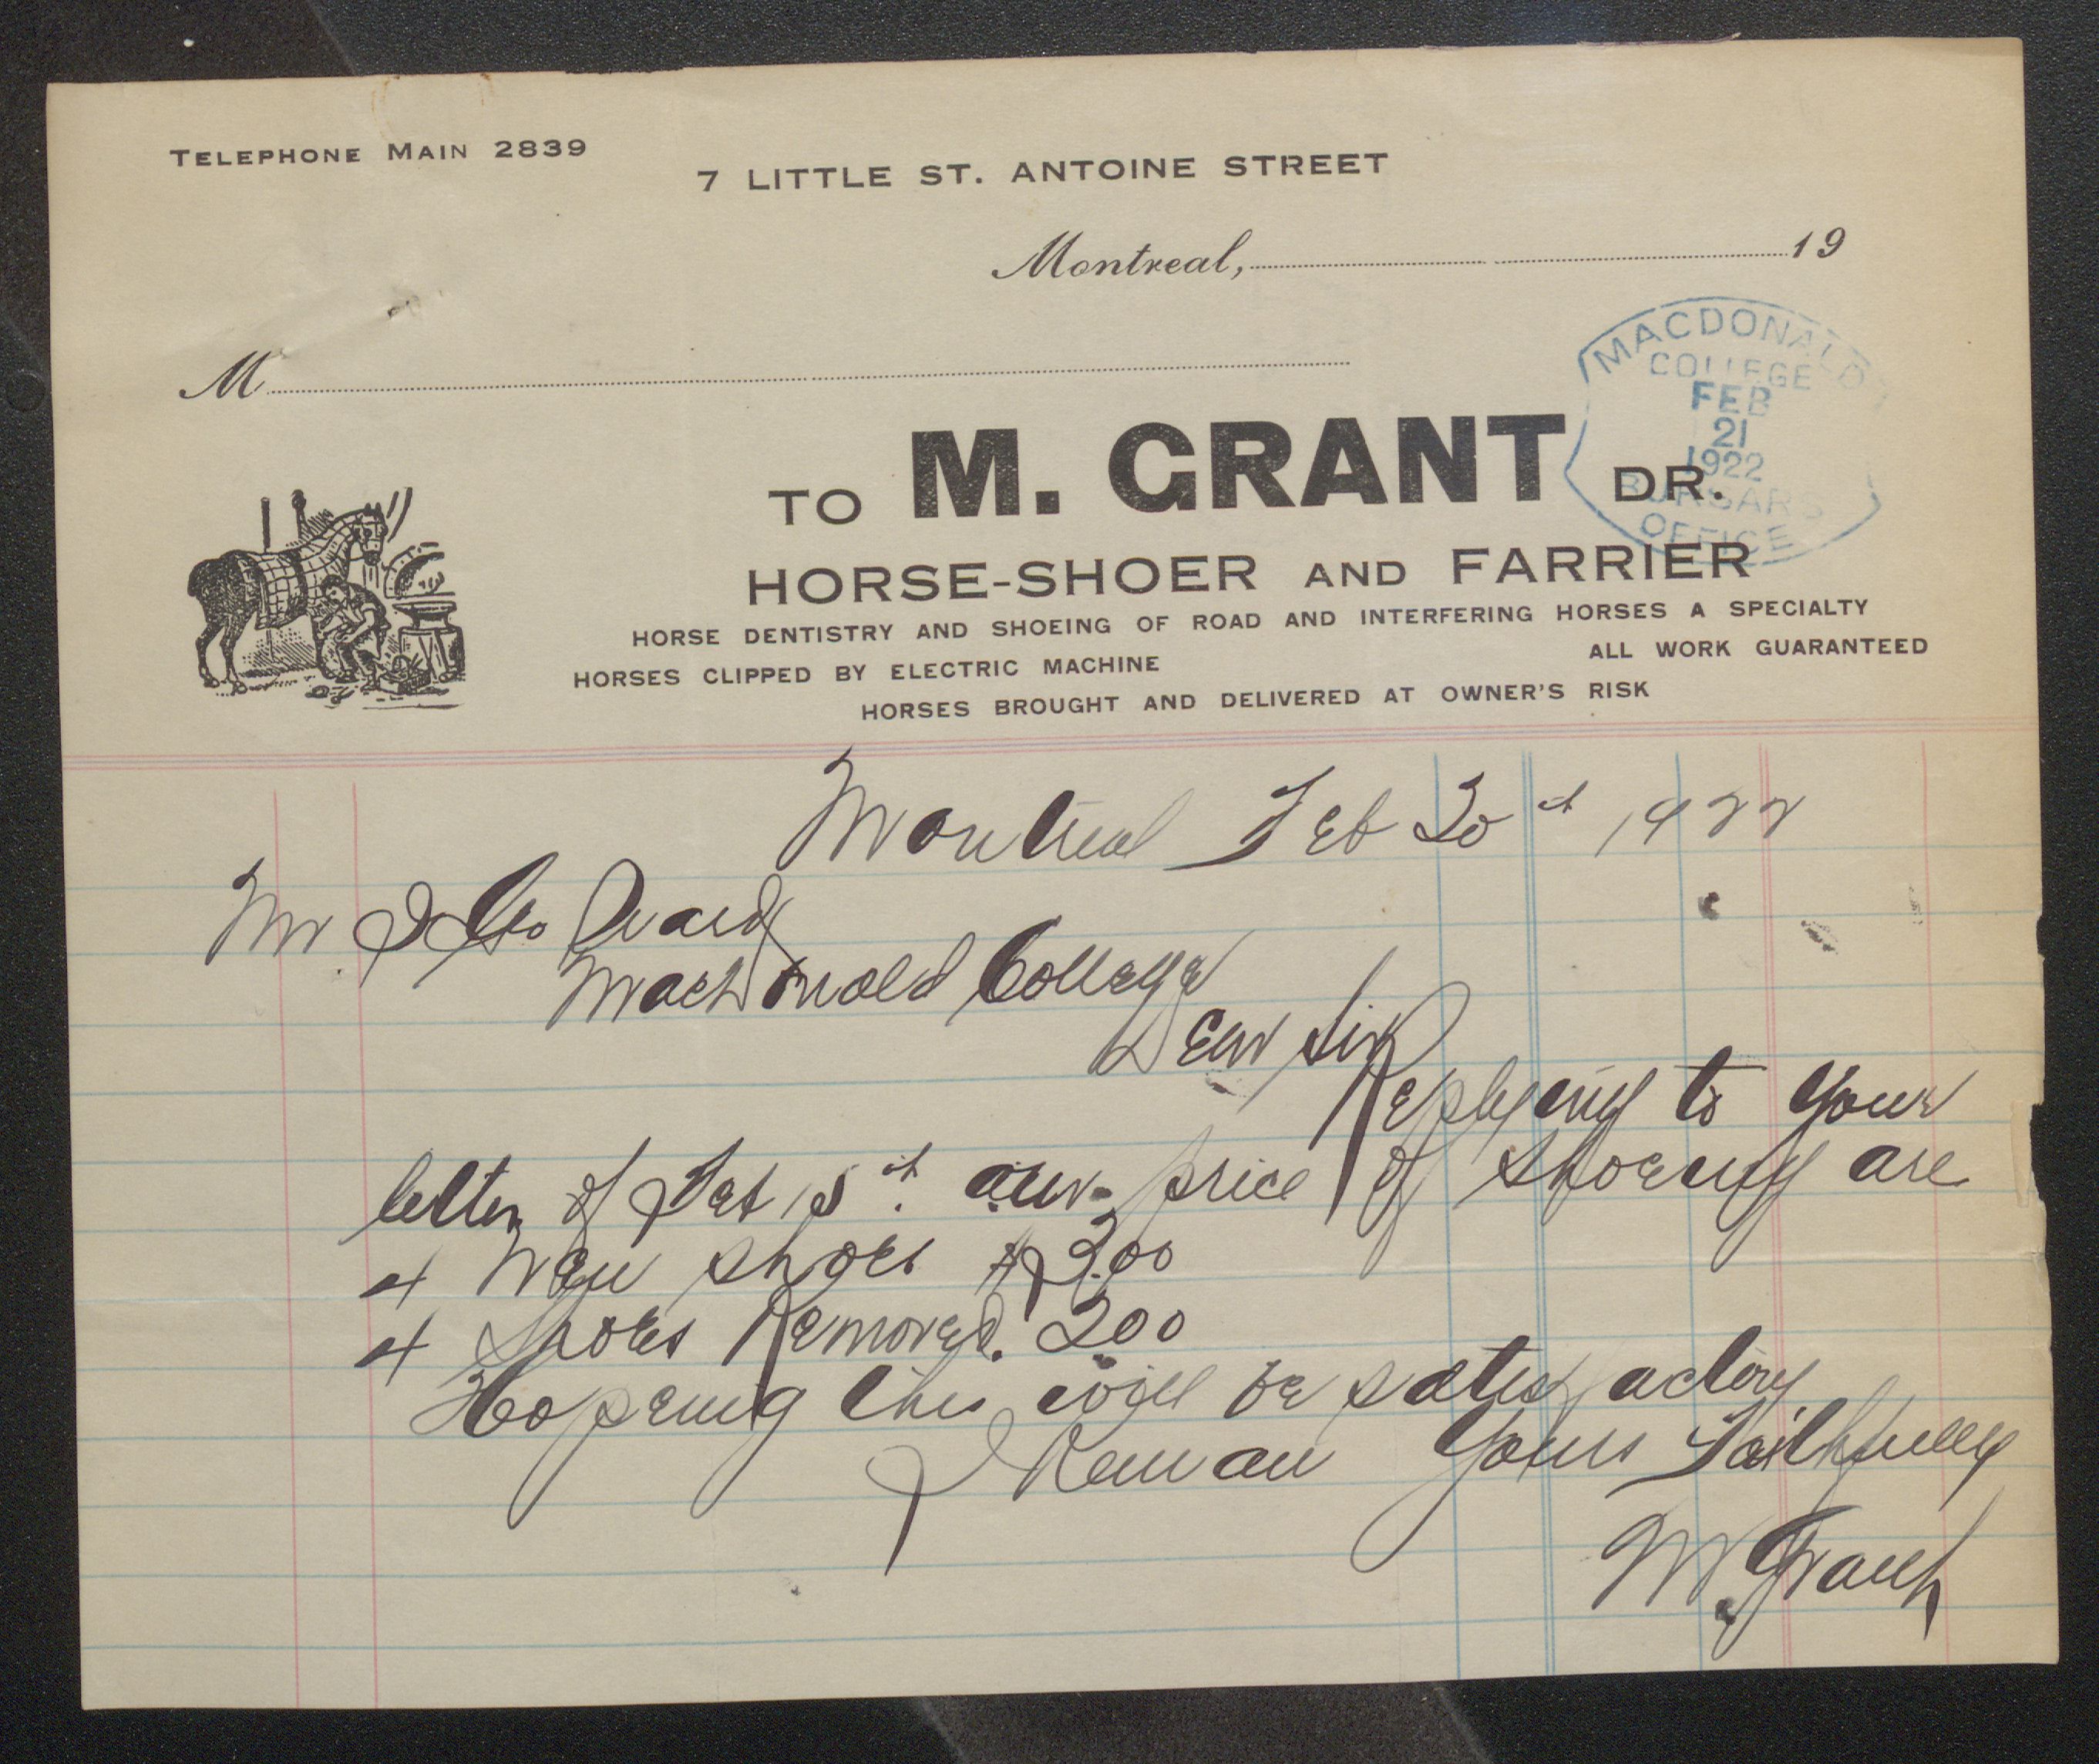 TELEPHONE MAIN 2839
7 LITTLE ST. ANTOINE STREET
Montreal, 19
M
MACDONALD
COLLEGE
FEB
21
1922
BURSAR'S
OFFICE
TO M. GRANT DR.
HORSE-SHOER AND FARRIER
HORSE DENTISTRY AND SHOEING OF ROAD AND INTERFERING HORSES A SPECIALTY
HORSES CLIPPED BY ELECTRIC MACHINE ALL WORK GUARANTEED
HORSES BROUGHT AND DELIVERED AT OWNER'S RISK
Montreal Feb 20 1922
Mr J Geo Ward
MacDonald College
Dear Sir
Replying to your
letter of Feb 15 our price of shoeing are
4 New shoes $3.00
4 Shoes Removed. 200
Hopeing this will be satisfactory
I Remain Yours Faithfully
M. Grant